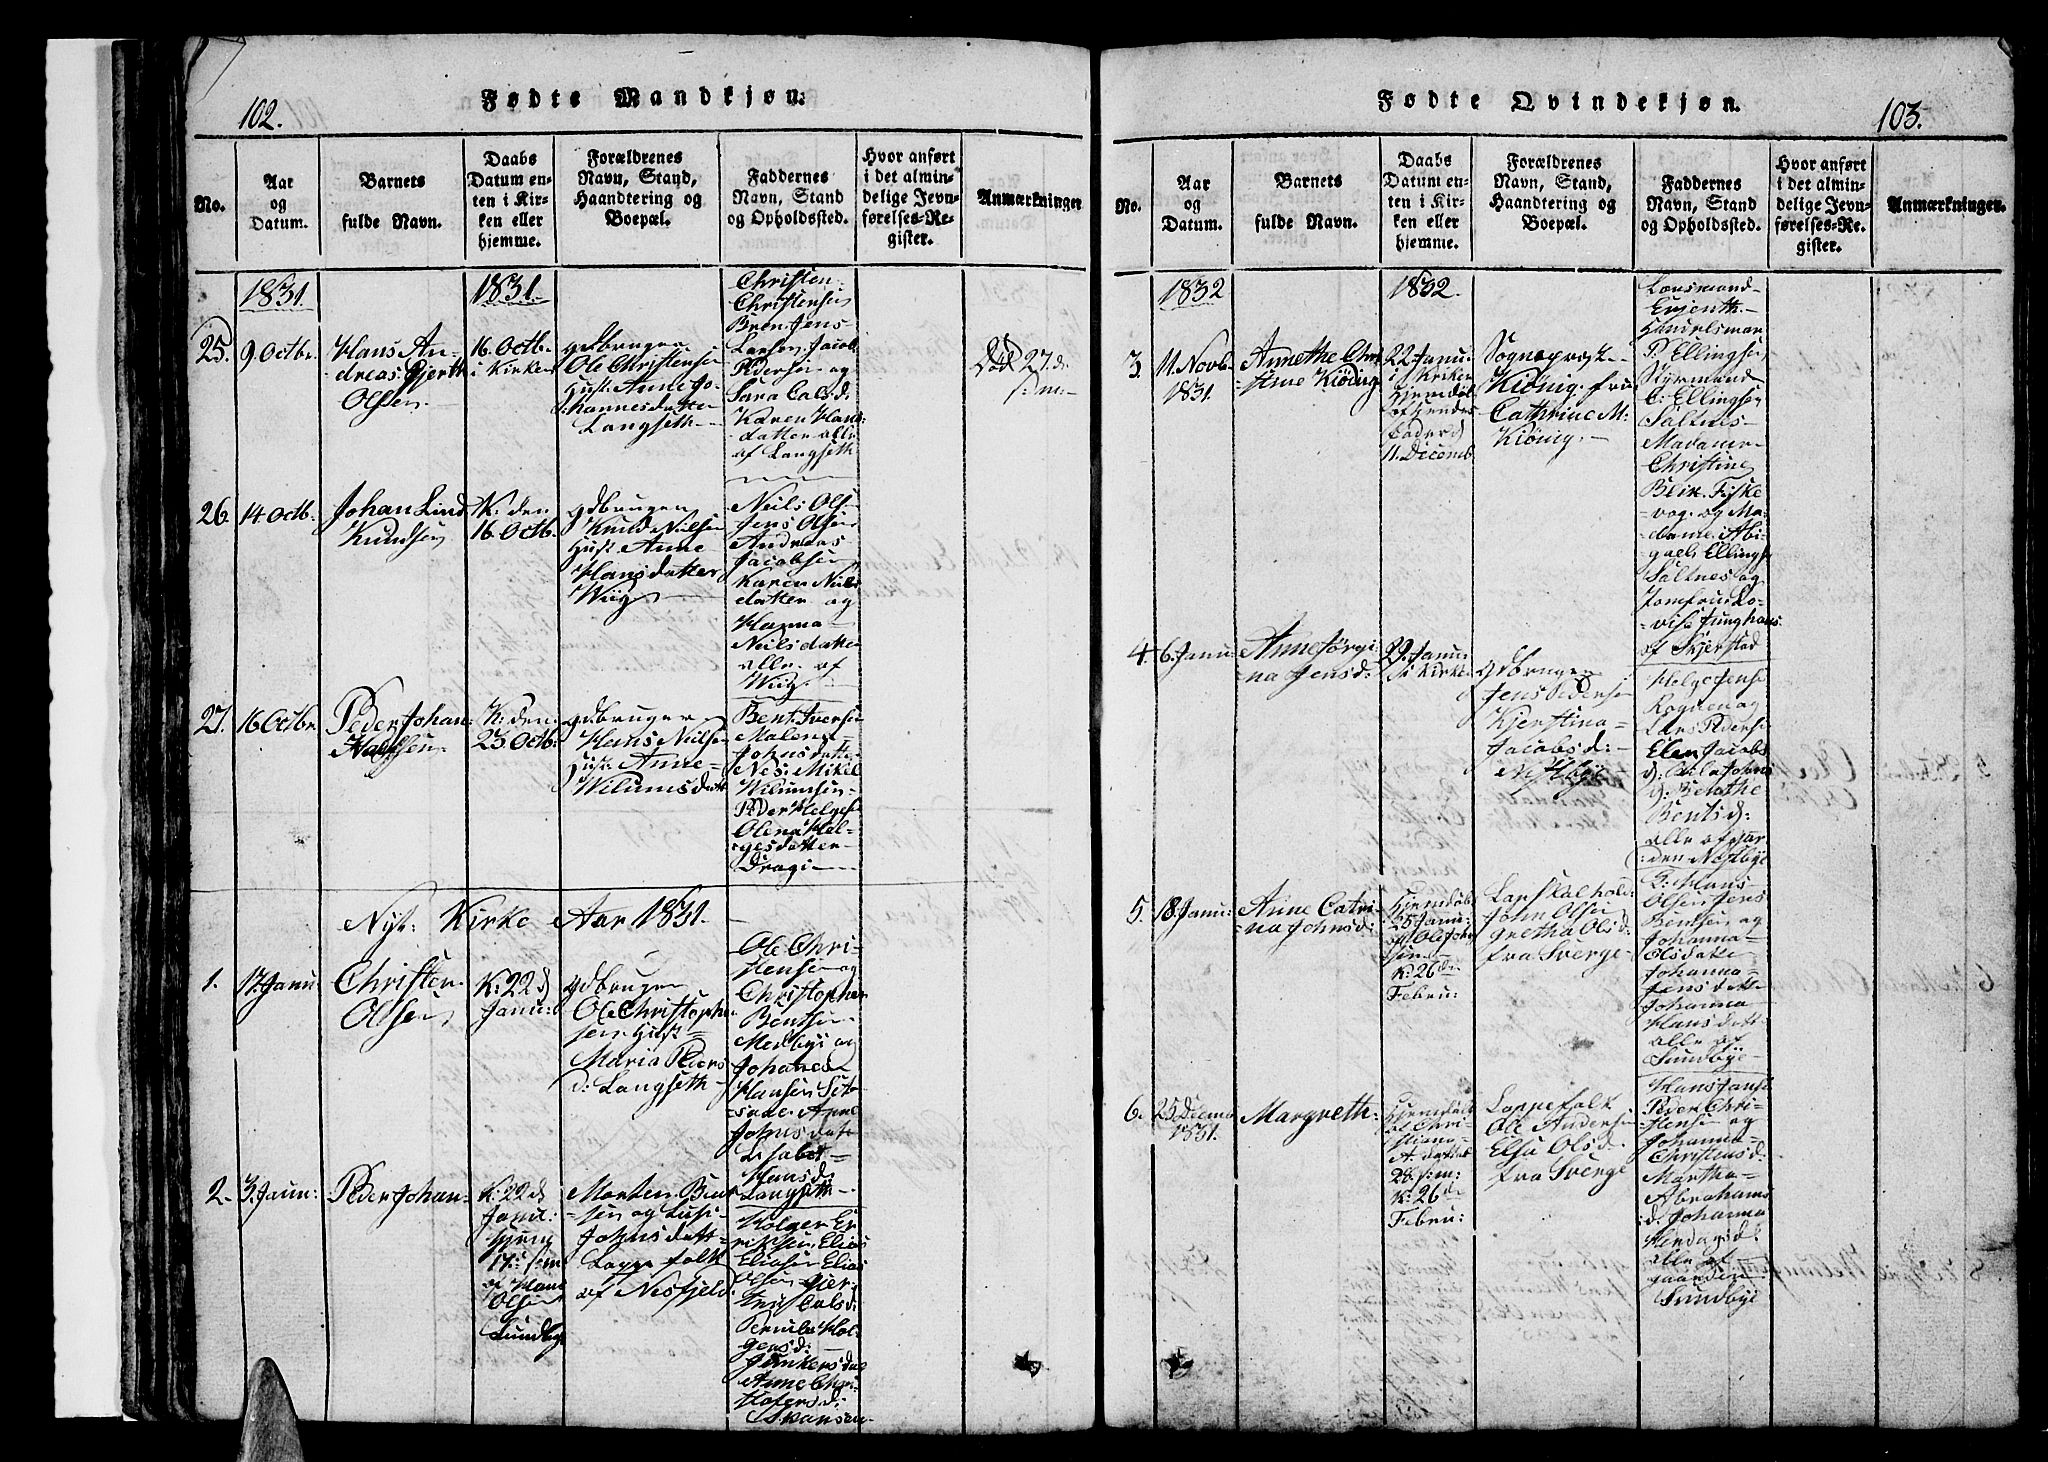 102.
Fødte Mandkjøn.
No.
Aar
og
Datum.
Barnets
fulde Navn.
Daabs
Datum en-
ten i Kir-
ken eller
hjemme.
Forældrenes
Navn, Stand,
Haandtering og
Boepæl.
Faddernes
Navn, Stand
og Opholdssted.
Hvor anført
i det almin-
delige Jevn-
førelses-Re-
gister.
Anmærkninger
1831.
1831.
25.
9 Octbr.
Hans An-
dreas Gjerth
Olsen
16 Octb.
i Kirken
gdbruger
Ole Christensen
Hust. Anne Jo-
hannesdatter
Langseth
Christen
Christensen
Brøn. Jens
Larsen Jacob
Pedersen og
Sara Calsd.
Karen Hans
datter alle
af Langseth
Død 27. d.
s. m.
26.
14 Octb.
Johan Lind
Knudsen
K: den
16 Octb.
gdbruger
Knud Nielsen
Hust. Anne
Hansdatter
Wiig
Neils Ols
Jens Olsen
Andreas
Jacobsen
Karen Niels
datter og
Hanna
Neilsdatter
alle af
Wiig
27.
16 Octbr.
Peder Johan
Hansen
K: den
23 Octb:
gdbruger
Hans Nielsen
Hust: Anne
Wilumsdatt
Bent Iversen
Malena
Johnsdatter
Nes: Mikel
Wilumsen
Peder Helgese
Olena Hel-
gesdatter
Dragi
Nyt: Kirke Aar 1831.
1.
17 Janu
Christen
Olsen
K: 22 d
Janu:
gdbruger
Ole Christoph
sen Hust
Maria Peders
d: Langseth
Ole Chri-
stensen og
Christopher
Bentsen
Medbye og
Johanes
Hansen Set-
Ane
Johnsdatt
Lisabet
Hansd.
Langseth
2.
3. Janu:
Peder Johan
K: 22 d
Janu:
hjem
17. s. m.
af Hans
Olsen
Sundbye
Morten Bent
sen og Lusi
Johnsdatt
Lappefolk
af Nesfjeld
Holger Er
riksen, Elias
Eliasen Elias
Olsen Gjer
trud Calsd:
Pernila Hol-
gersd:
Junkersda
Anne Chri-
stofersd:
Skansen
103.
Fødte Qvindekjøn.
No.
Aar
og
Datum.
Barnets
fulde Navn.
Daabs
Datum en-
ten i Kir-
ken eller
hjemme.
Forældrenes
Navn, Stand,
Haandtering og
Boepæl.
Faddernes
Navn, Stand
og Opholdssted.
Hvor anført
i det almin-
delige Jevn-
førelses-Re-
gister.
Anmærkninger.
1832
1832.
3.
11. Novb.
1831.
Annethe Chri
stine Kiönig
22 Janu:
i Kirken
Hjemdöbt
af
Fader d
11. Decemb
Sognepræst
Kiönig. frue
Cathrine M:
Kiönig.
Lensmand
Enjenth.
Handelsman
P. Ellingsen
Styrmand
C. Ellingsen
Saltnes
Madame
Christine
Blix. Fiske
vog. og Ma-
dame. Abi-
gael Ellings
Saltnes og
Jomfru Lo-
vise Junghans
af Skjerstad
4.
6. Janu:
Anne Jörgi-
na Jensd:
29. Janu:
i Kirken
gdbruger
Jens Pedersen
Kjerstina
Jacobsd:
Nestbye
Helge Jense
Rognen og
Lars Pederse
Elen Jacobs
d: Johns
d: Berethe
Bentsd:
alle af gaar
den Nestbye
5.
18. Janu:
Anne Catri-
na Johnsd:
Hjemdöbt
25 Janu:
af Ole John
sen
K: 26 de
Febru:
Lapfolk
John Olsen
Gretha Olsd:
fra Sverge
Hans
Olsen Jens
Bentsen og
Johanna
Olsdatter
Johanna
Jensdatt
Johanna
Hansdatt
alle af
Sundbye
6.
25 Decmb
1831.
Margreth:
Hjemdöbt
af Chri-
stiana
A. datter
28. s: m:
K: 26 de
Febru:
Lappefolk
Ole Andersen
Elsa Olsd:
fra Sverge
Hans Janse
Peder Chri-
stensen og
Johanna
Christensd:
Martha
Abrahams
d. Johanna
Herdagsd.
alle af
gaarden
Sundbye